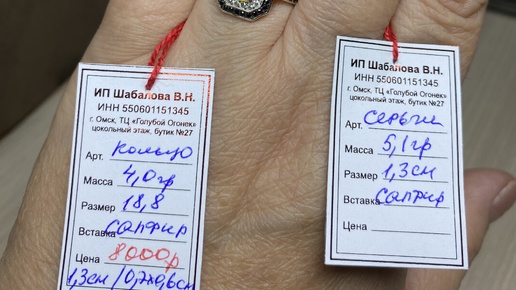 ИП Шабалова В.Н.
ИНН 550601151345
г. Омск, ТЦ «Голубой Огонек»
цокольный этаж, бутик №27
Арт. кольцо
Масса 4,0гр
Размер 18,8
Вставка сапфир
Цена 8000р
1,3см/0,7х0,6см
ИП Шабалова В.Н.
ИНН 550601151345
г. Омск, ТЦ «Голубой Огонек»
цокольный этаж, бутик №27
Арт. серьги
Масса 5,1гр
Размер 1,3см
Вставка сапфир
Цена